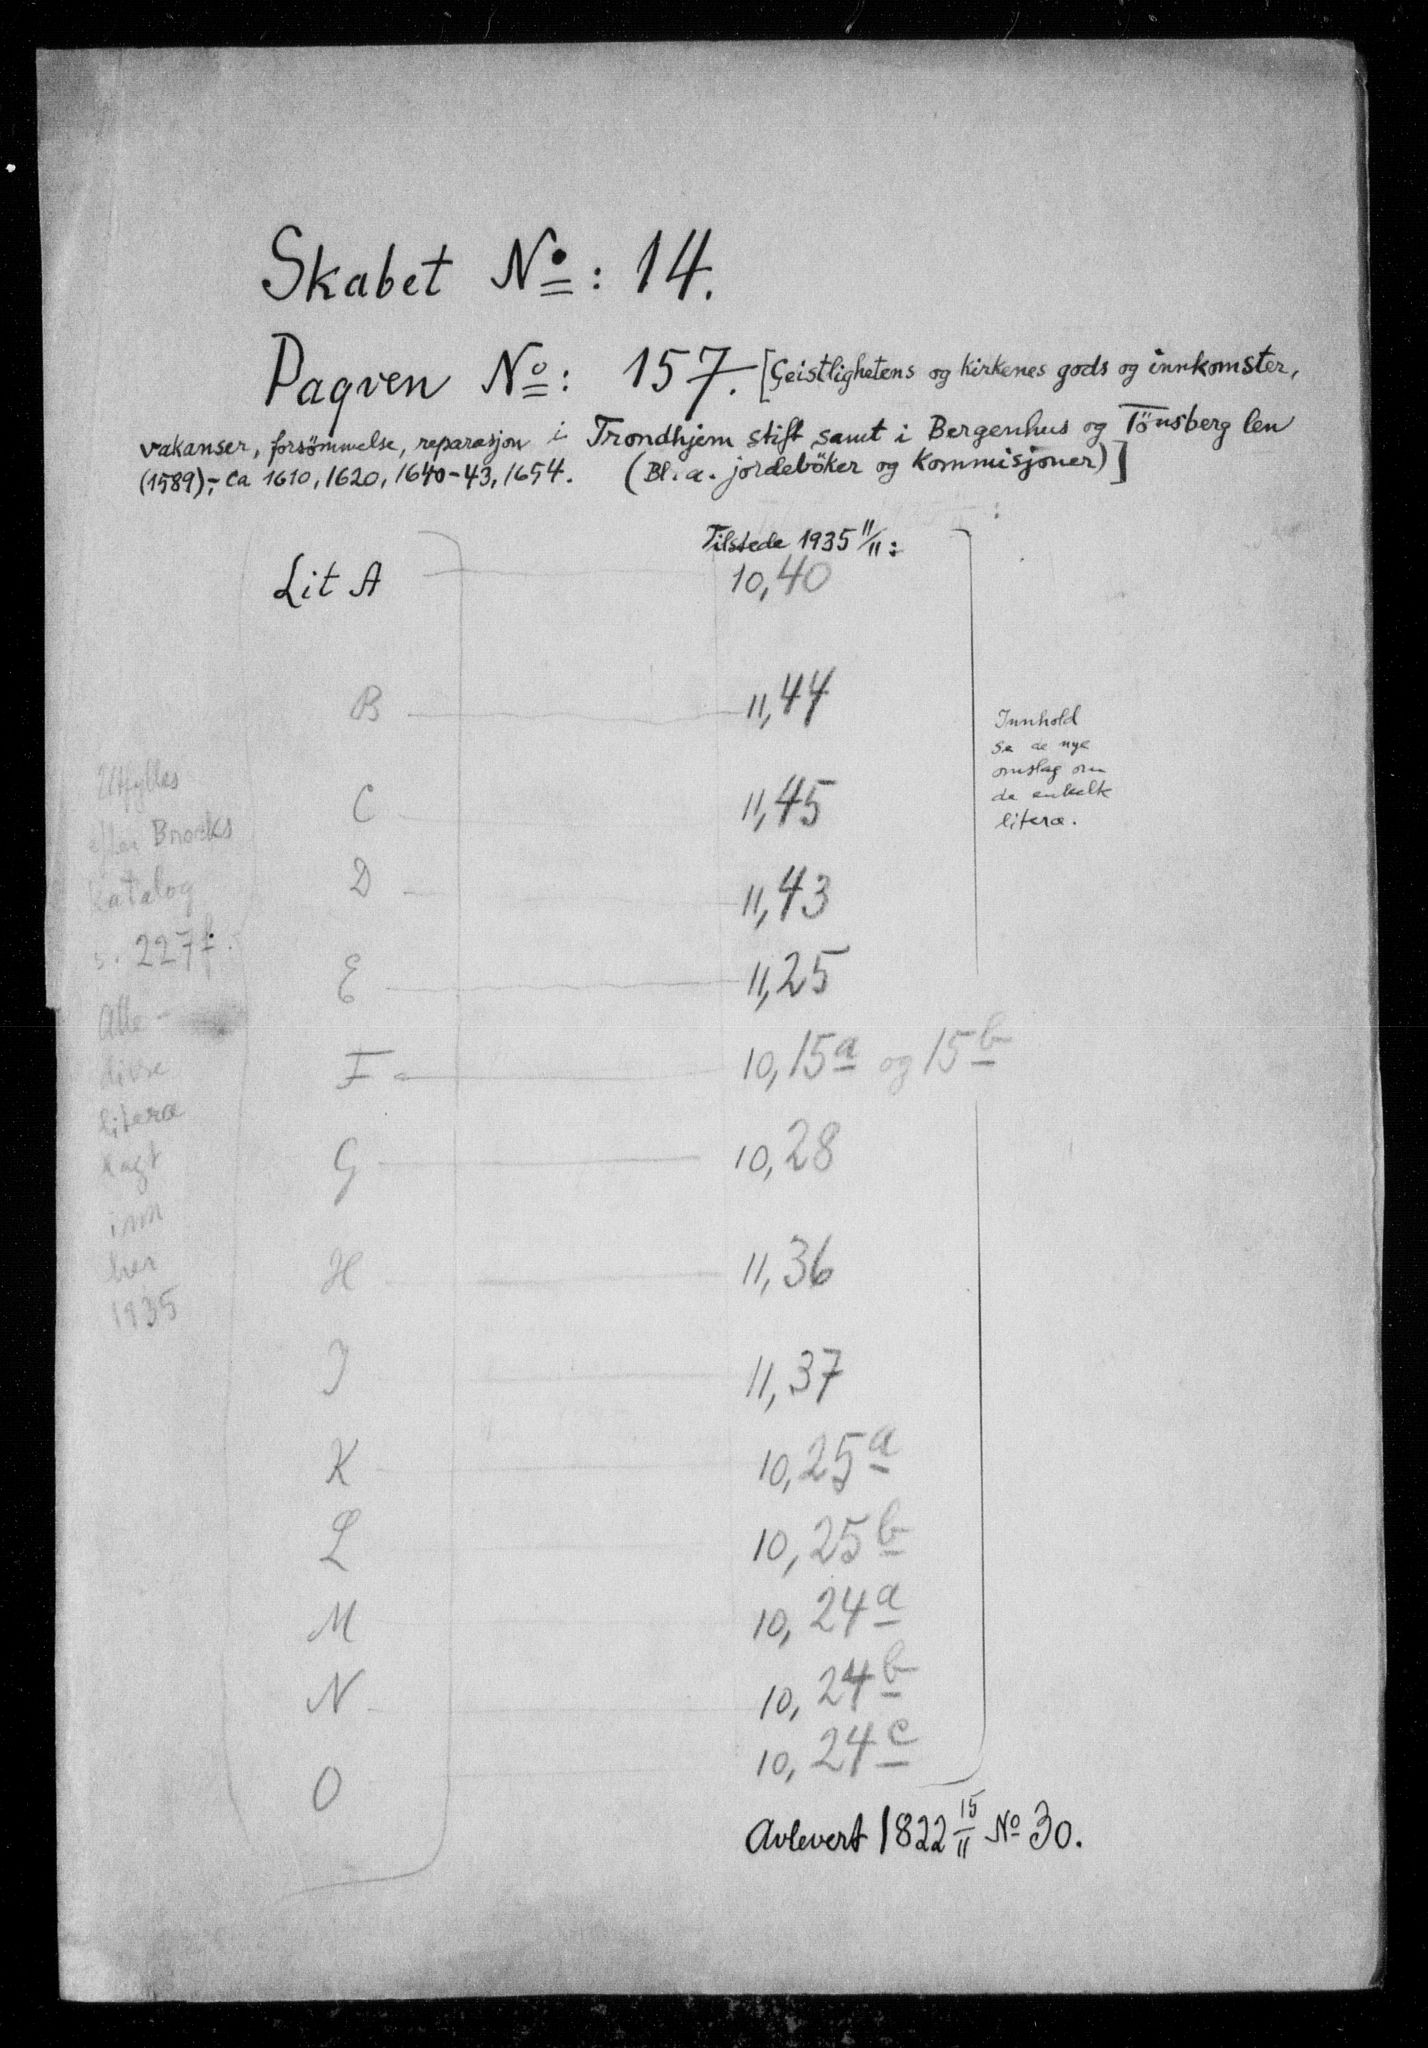 Skabet No: 14.
Paqven No: 157. [Geistlighetens og kirkenes gods og innkomster,
vakanser, forsömmelse, reparasjon i Trondhjem stift samt i Bergenhus og Tönsberg len
(1589)-, ca 1610, 1620, 1640-43, 1654. (Bl. a. jordeböker og kommisjoner)]
Tilstede 1935 11/11:
Lit A 10,40
B 11,44
C 11,45
D 11,43
E 11,25
F 10,15a og 15b
G 10,28
H 11,36
I 11,37
K 10,25a
L 10,25b
M 10,24a
N 10,24b
O 10,24c
Innhold
se de nye
omslag om
de enkelte
litera.
Utfylles
efter Brocks
Katalog
s. 227f.
Alle
disse
litera
lagt
inn
her
1935
Avlevert 1822 15/11 No 30.